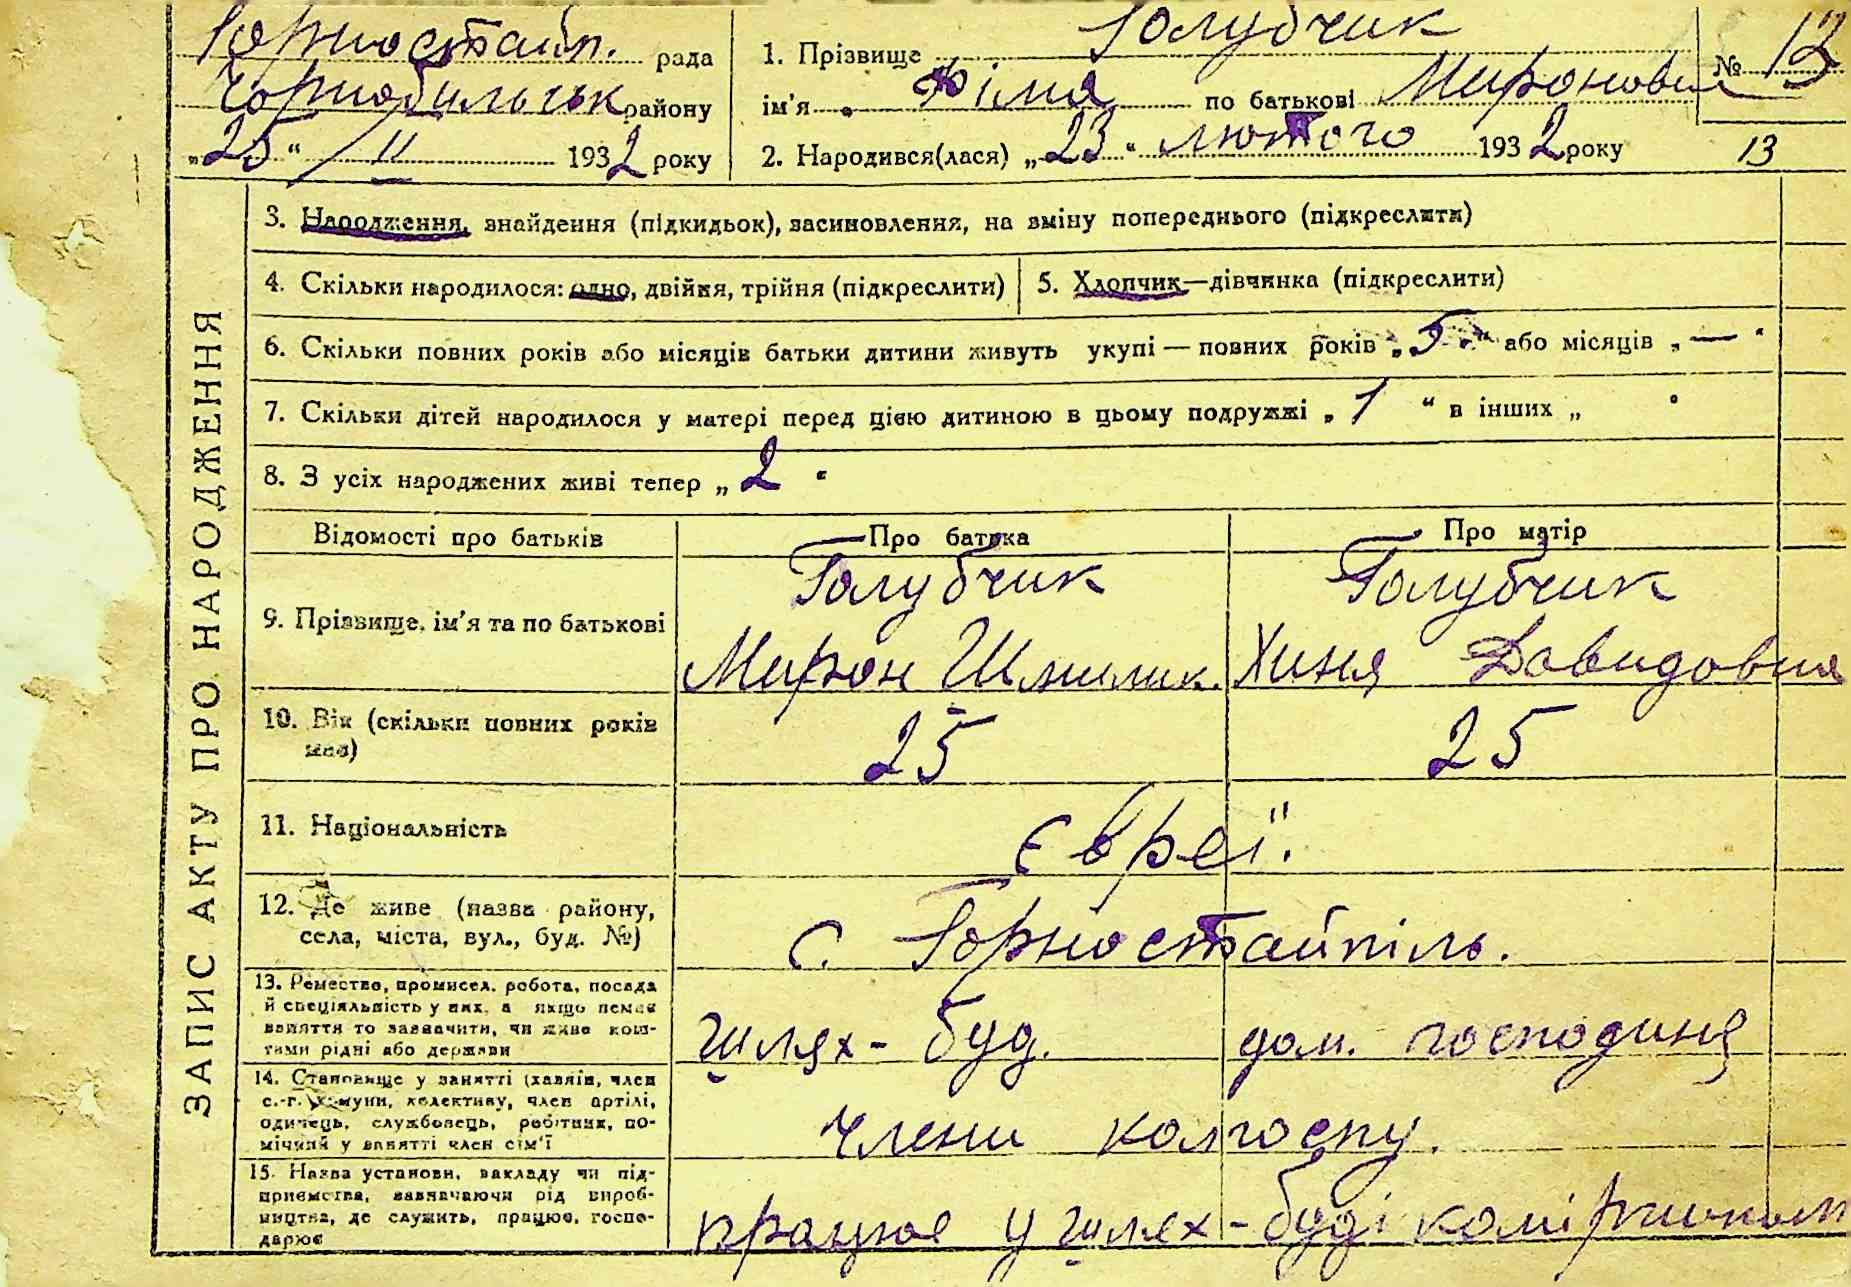 Горностайп. рада
Чорнобильськ району
„25“ / II 1932 року
1. Прізвище Голубчик
ім'я Фіма по батькові Миронович
2. Народився(лася) „23“ лютого 1932 року
№ 13
13
ЗАПИС АКТУ ПРО НАРОДЖЕННЯ
3. Народження, знайдення (підкидьок), засиновлення, на зміну попереднього (підкреслити)
4. Скільки народилося: одно, двійня, трійня (підкреслити)
5. Хлопчик—дівчинка (підкреслити)
6. Скільки повних років або місяців батьки дитини живуть укупі — повних років „5“ або місяців „—“
7. Скільки дітей народилося у матері перед цією дитиною в цьому подружжі „1“ в інших „ “
8. З усіх народжених живі тепер „2“
Відомості про батьків Про батька Про матір
9. Прізвище, ім'я та по батькові
Голубчик Голубчик
Мирон Шмилик. Хиня Давидовна
10. Вік (скільки повних років
має)
25 25
11. Національність
Євреї.
12. Де живе (назва району,
села, міста, вул., буд. №)
с. Горностайпіль.
13. Ремество, промисел, робота, посада
й спеціяльність у них, а якщо немає
заняття то зазначити, чи живе кош-
тами рідні або держави
Шлях-буд. дом. господиня
14. Становище у занятті (хазяїн, член
с.-г. комуни, колективу, член артілі,
одинець, службовець, робітник, по-
мічний у занятті член сім'ї
Члени колгоспу.
15. Назва установи, закладу чи під-
приємства, зазначаючи рід вироб-
ництва, де служить, працює, госпо-
дарює
працює у шлях-буді комірником